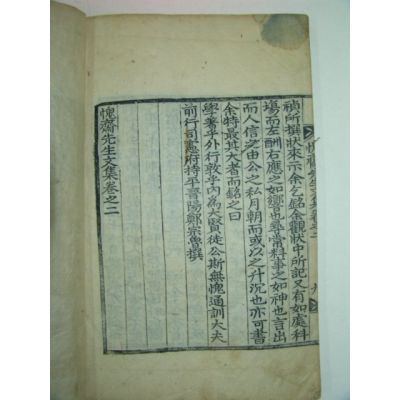 愧齋先生文集卷之二　九
禎所撰狀來示余乞銘余觀狀中所記又有如處科
場而左酬右應之如響也尋常料事之如神也言出
而人信之由公之私月朝而或以之升沉也亦可書
余特最其大者而銘之曰
學著乎外行敦乎內爲大賢徒公斯無愧通訓大夫
前行司憲府持平晋陽鄭宗魯撰
愧齋先生文集卷之二